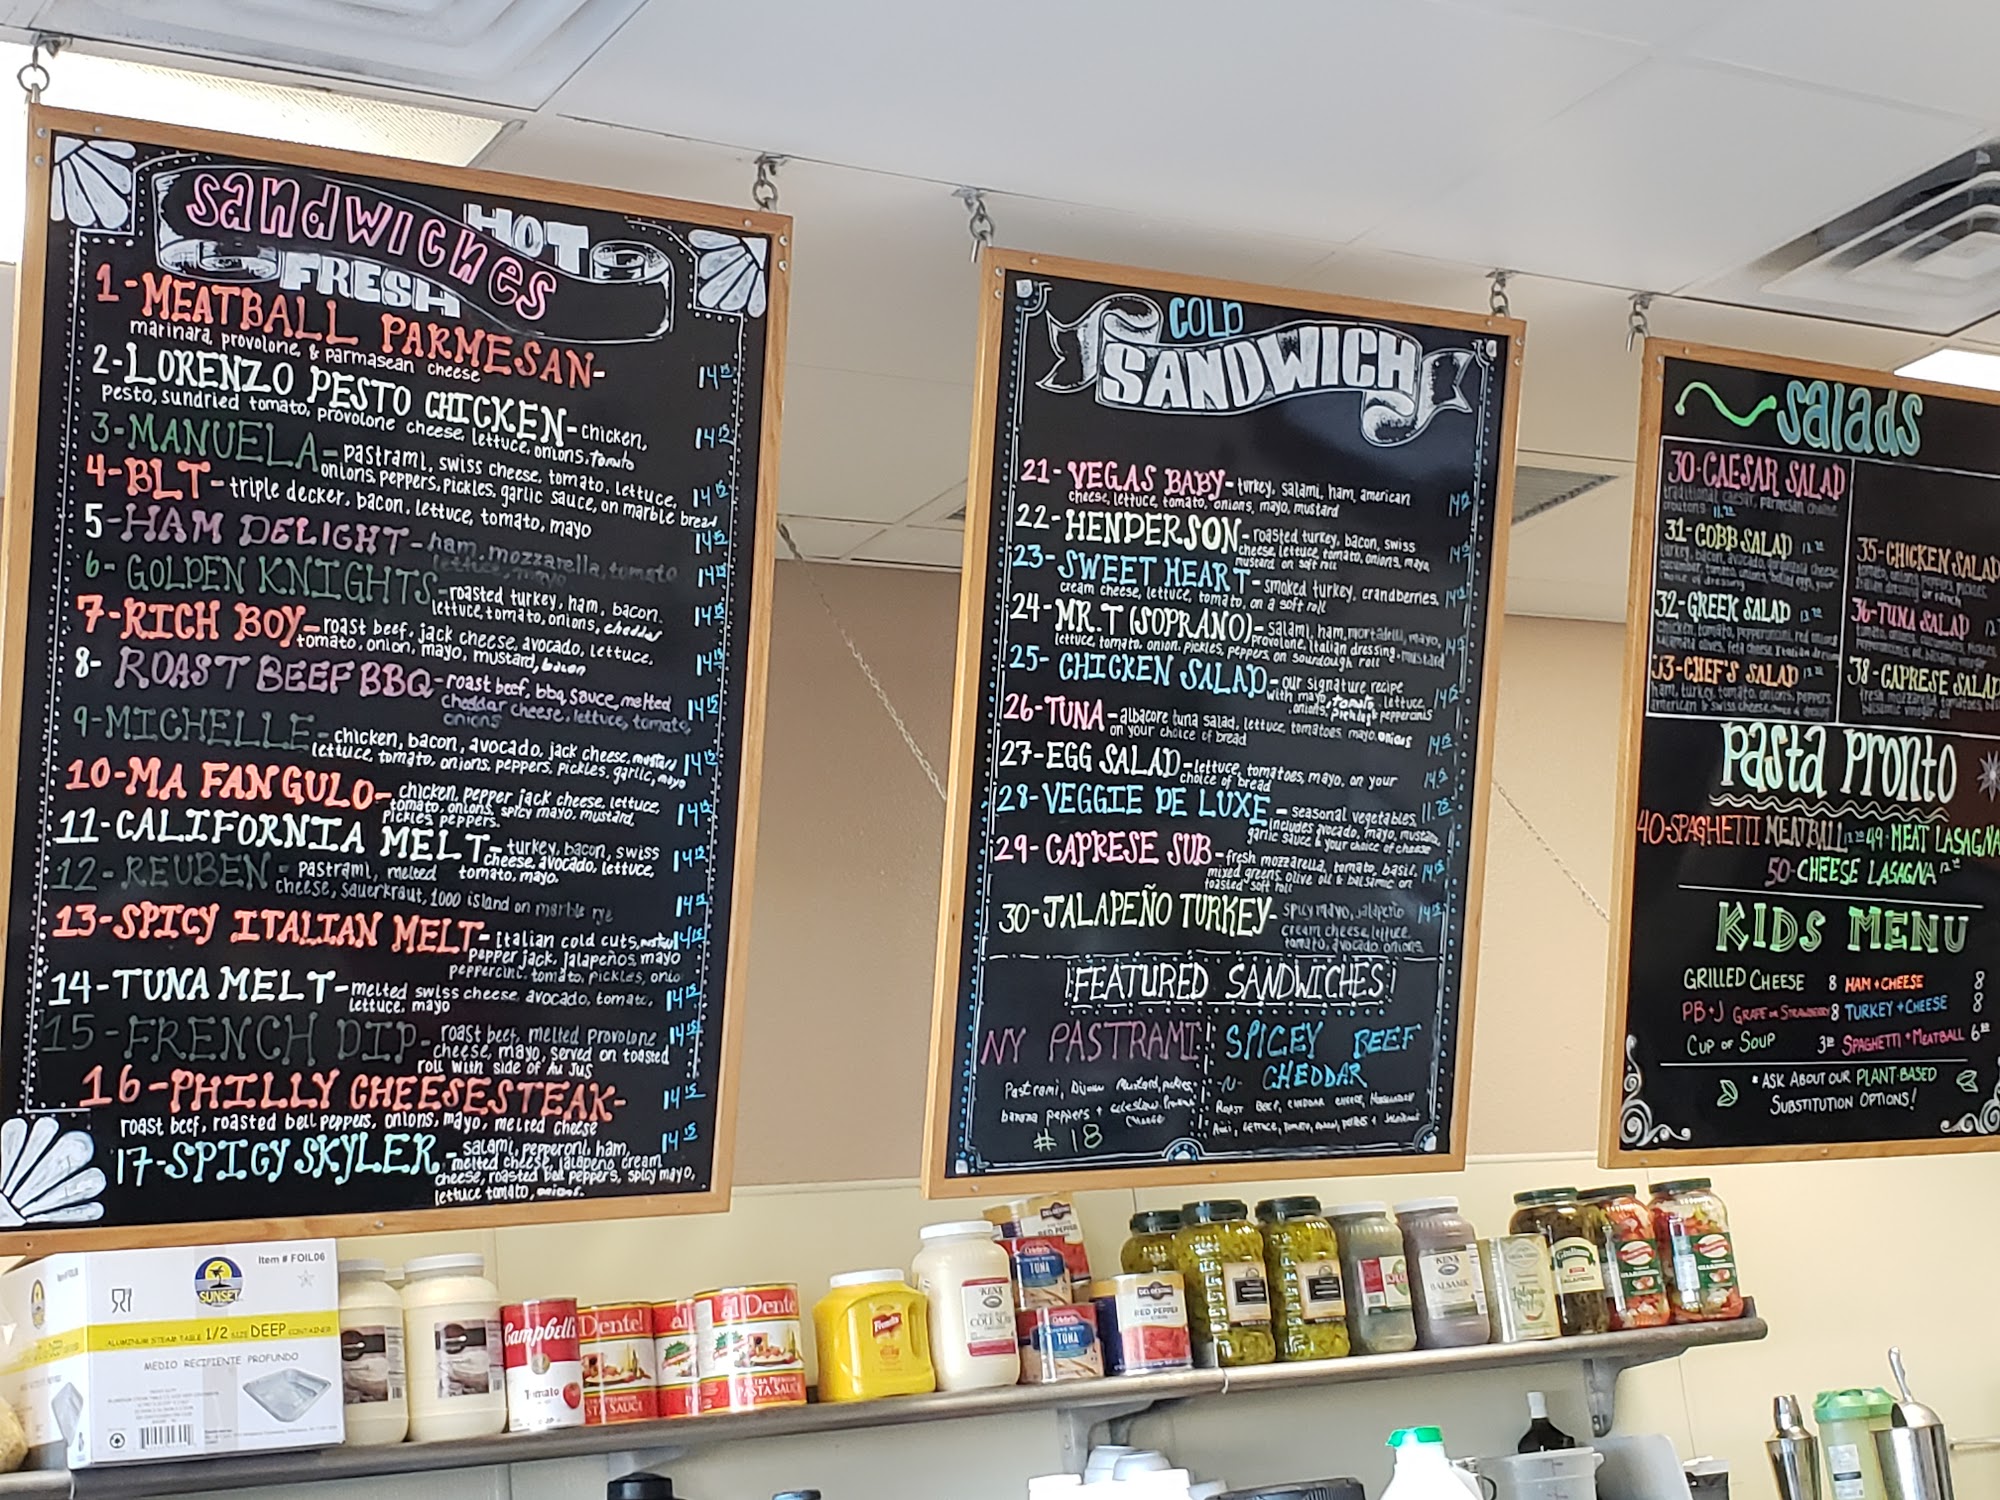 Sandwiches
HOT
FRESH
1-MEATBALL PARMESAN-
marinara, provolone, & parmasean cheese 14 15
2-LORENZO PESTO CHICKEN-chicken,
pesto, sundried tomato, provolone cheese, lettuce, onions, tomato 14 15
3-MANUELA-pastrami, swiss cheese, tomato, lettuce,
onions, peppers, pickles, garlic sauce, on marble bread 14 15
4-BLT-triple decker, bacon, lettuce, tomato, mayo 14 15
5-HAM DELIGHT-ham, mozzarella, tomato
lettuce, mayo 14 15
6-GOLDEN KNIGHTS-roasted turkey, ham, bacon,
lettuce, tomato, onions, cheddar 14 15
7-RICH BOY-roast beef, jack cheese, avocado, lettuce,
tomato, onion, mayo, mustard, bacon 14 15
8-ROAST BEEF BBQ-roast beef, bbq sauce, melted
cheddar cheese, lettuce, tomato,
onions 14 15
9-MICHELLE-chicken, bacon, avocado, jack cheese, mustard
lettuce, tomato, onions, peppers, pickles, garlic, mayo 14 15
10-MA FANGULO-chicken, pepper jack cheese, lettuce,
tomato, onions, spicy mayo, mustard,
pickles peppers. 14 15
11-CALIFORNIA MELT-turkey, bacon, swiss
cheese, avocado, lettuce,
tomato, mayo. 14 15
12-REUBEN-pastrami, melted
cheese, sauerkraut, 1000 island on marble rye 14 15
13-SPICY ITALIAN MELT-italian cold cuts, mustard 14 15
pepper jack, jalapeños, mayo
peppercini, tomato, pickles, onio
14-TUNA MELT-melted swiss cheese, avocado, tomato,
lettuce, mayo 14 15
15-FRENCH DIP-roast beef, melted provolone
cheese, mayo, served on toasted
roll with side of Au Jus 14 15
16-PHILLY CHEESESTEAK-
roast beef, roasted bell peppers, onions, mayo, melted cheese 14 15
17-SPICY SKYLER-salami, pepperoni, ham,
melted cheese, jalapeno cream
cheese, roasted bell peppers, spicy mayo,
lettuce tomato, onions. 14 15
COLD
SANDWICH
21-VEGAS BABY-turkey, salami, ham, american
cheese, lettuce, tomato, onions, mayo, mustard
22-HENDERSON-roasted turkey, bacon, swiss
cheese, lettuce, tomato, onions, mayo,
mustard on soft roll
23-SWEET HEART-smoked turkey, cranberries,
cream cheese, lettuce, tomato, on a soft roll
24-MR.T (SOPRANO)-salami, ham, mortadella, mayo,
provolone, italian dressing, mustard
lettuce, tomato, onion, pickles, peppers, on sourdough roll
25-CHICKEN SALAD-our signature recipe
with mayo, tomato, lettuce,
onions, pickles & pepperoncinis
26-TUNA-albacore tuna salad, lettuce, tomatoes, mayo, onions
on your choice of bread 14 15
27-EGG SALAD-lettuce, tomatoes, mayo, on your
choice of bread
28-VEGGIE DE LUXE-seasonal vegetables, 11.75
includes avocado, mayo, mustard,
garlic sauce & your choice of cheese
29-CAPRESE SUB-fresh mozzarella, tomato, basil,
mixed greens, olive oil & balsamic on
toasted soft roll 14 15
30-JALAPEÑO TURKEY-spicy mayo, jalapeño
cream cheese, lettuce,
tomato, avocado, onions 14 15
FEATURED SANDWICHES
NY PASTRAMI
Pastrami, Dijon Mustard, pickles
banana peppers + coleslaw, Provolone
Cheese
# 18
SPICEY BEEF
-N- CHEDDAR
ROAST BEEF, CHEDDAR CHEESE, HORSERADISH
Salads
30-CAESAR SALAD
traditional caesar, parmesan cheese,
croutons
31-COBB SALAD
turkey, bacon, avocado, gorgonzola cheese
cucumber, tomato, onions, boiled egg, your
choice of dressing
32-GREEK SALAD
chicken, tomato, pepperoncini, red onions
kalamata olives, feta cheese, italian dressing
33-CHEF'S SALAD
ham, turkey, tomato, onions, peppers,
american & swiss cheese
35-CHICKEN SALAD
tomato, onions, peppers, pickles,
italian dressing or ranch
36-TUNA SALAD
38-CAPRESE SALAD
fresh mozzarella, tomatoes,
balsamic vinegar, oil
Pasta Pronto
40-SPAGHETTI MEATBALL 49-MEAT LASAGNA
50-CHEESE LASAGNA
KIDS MENU
GRILLED CHEESE 8 HAM + CHEESE 8
PB+J GRAPE OR STRAWBERRY 8 TURKEY + CHEESE 8
CUP OF SOUP SPAGHETTI + MEATBALL
* ASK ABOUT OUR PLANT-BASED
SUBSTITUTION OPTIONS!
Item # FOIL06
SUNSET
ALUMINUM STEAM TABLE 1/2 SIZE DEEP CONTAINER
MEDIO RECIPIENTE PROFUNDO
Campbell's
Tomato
al Dente
PASTA SAUCE
French's
KEN'S
COLE SLAW
TUNA
TUNA
RED PEPPER
RED PEPPER
KEN'S
BALSAMIC